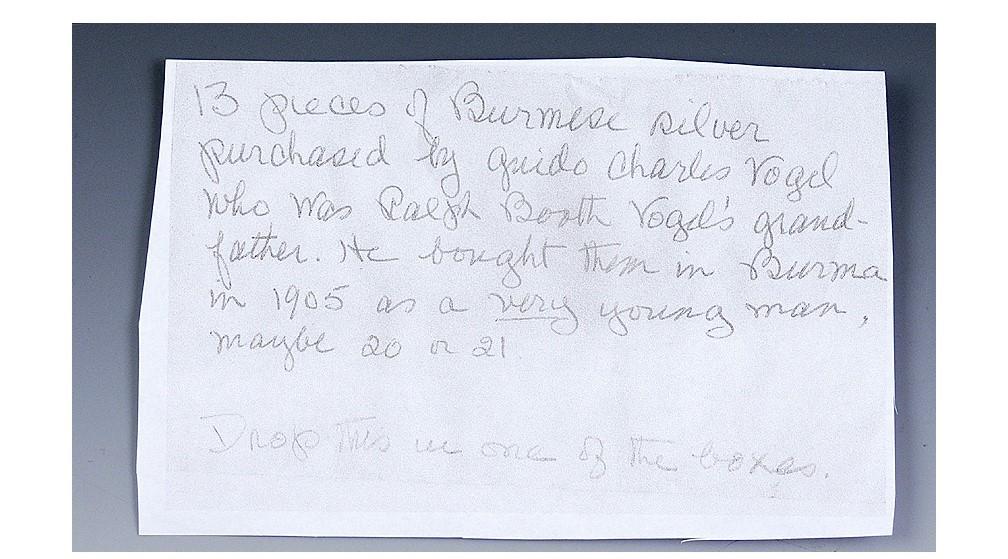 13 pieces of Burmese silver
purchased by Guido Charles Vogel
who was Ralph Booth Vogel's grand-
father. He bought them in Burma
in 1905 as a very young man,
maybe 20 or 21.
Drop this in one of the boxes.